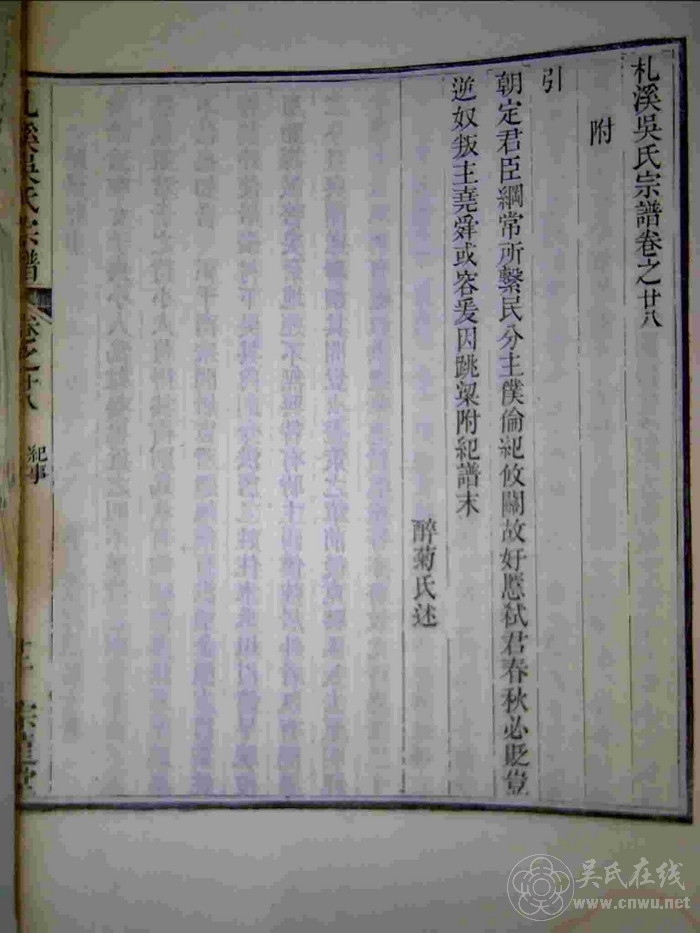 札溪吳氏宗譜卷之廿八
附
引
朝定君臣綱常所繫民分主僕倫紀攸關故好慝弑君春秋必貶豈
逆奴叛主堯舜或容爰因跳梁附紀譜末
醉菊氏述
札溪吳氏宗譜
卷之廿八
紀事
吴氏在线
www.cnwu.net